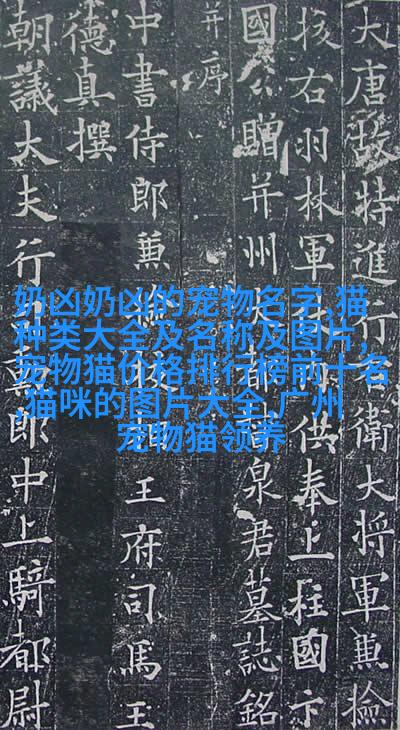 大唐故特進行右衛大將軍兼檢
校右羽林軍供奉上柱國卞
國公贈并州大都督泉君墓誌銘
并序
中書侍郎兼檢校相王府司馬王
德真撰
朝議大夫行司勳郎中上騎都尉
奶凶奶凶的宠物名字,猫
种类大全及名称及图片,
宠物猫价格排行榜前十名
猫咪的图片大全,广州
宠物猫领养